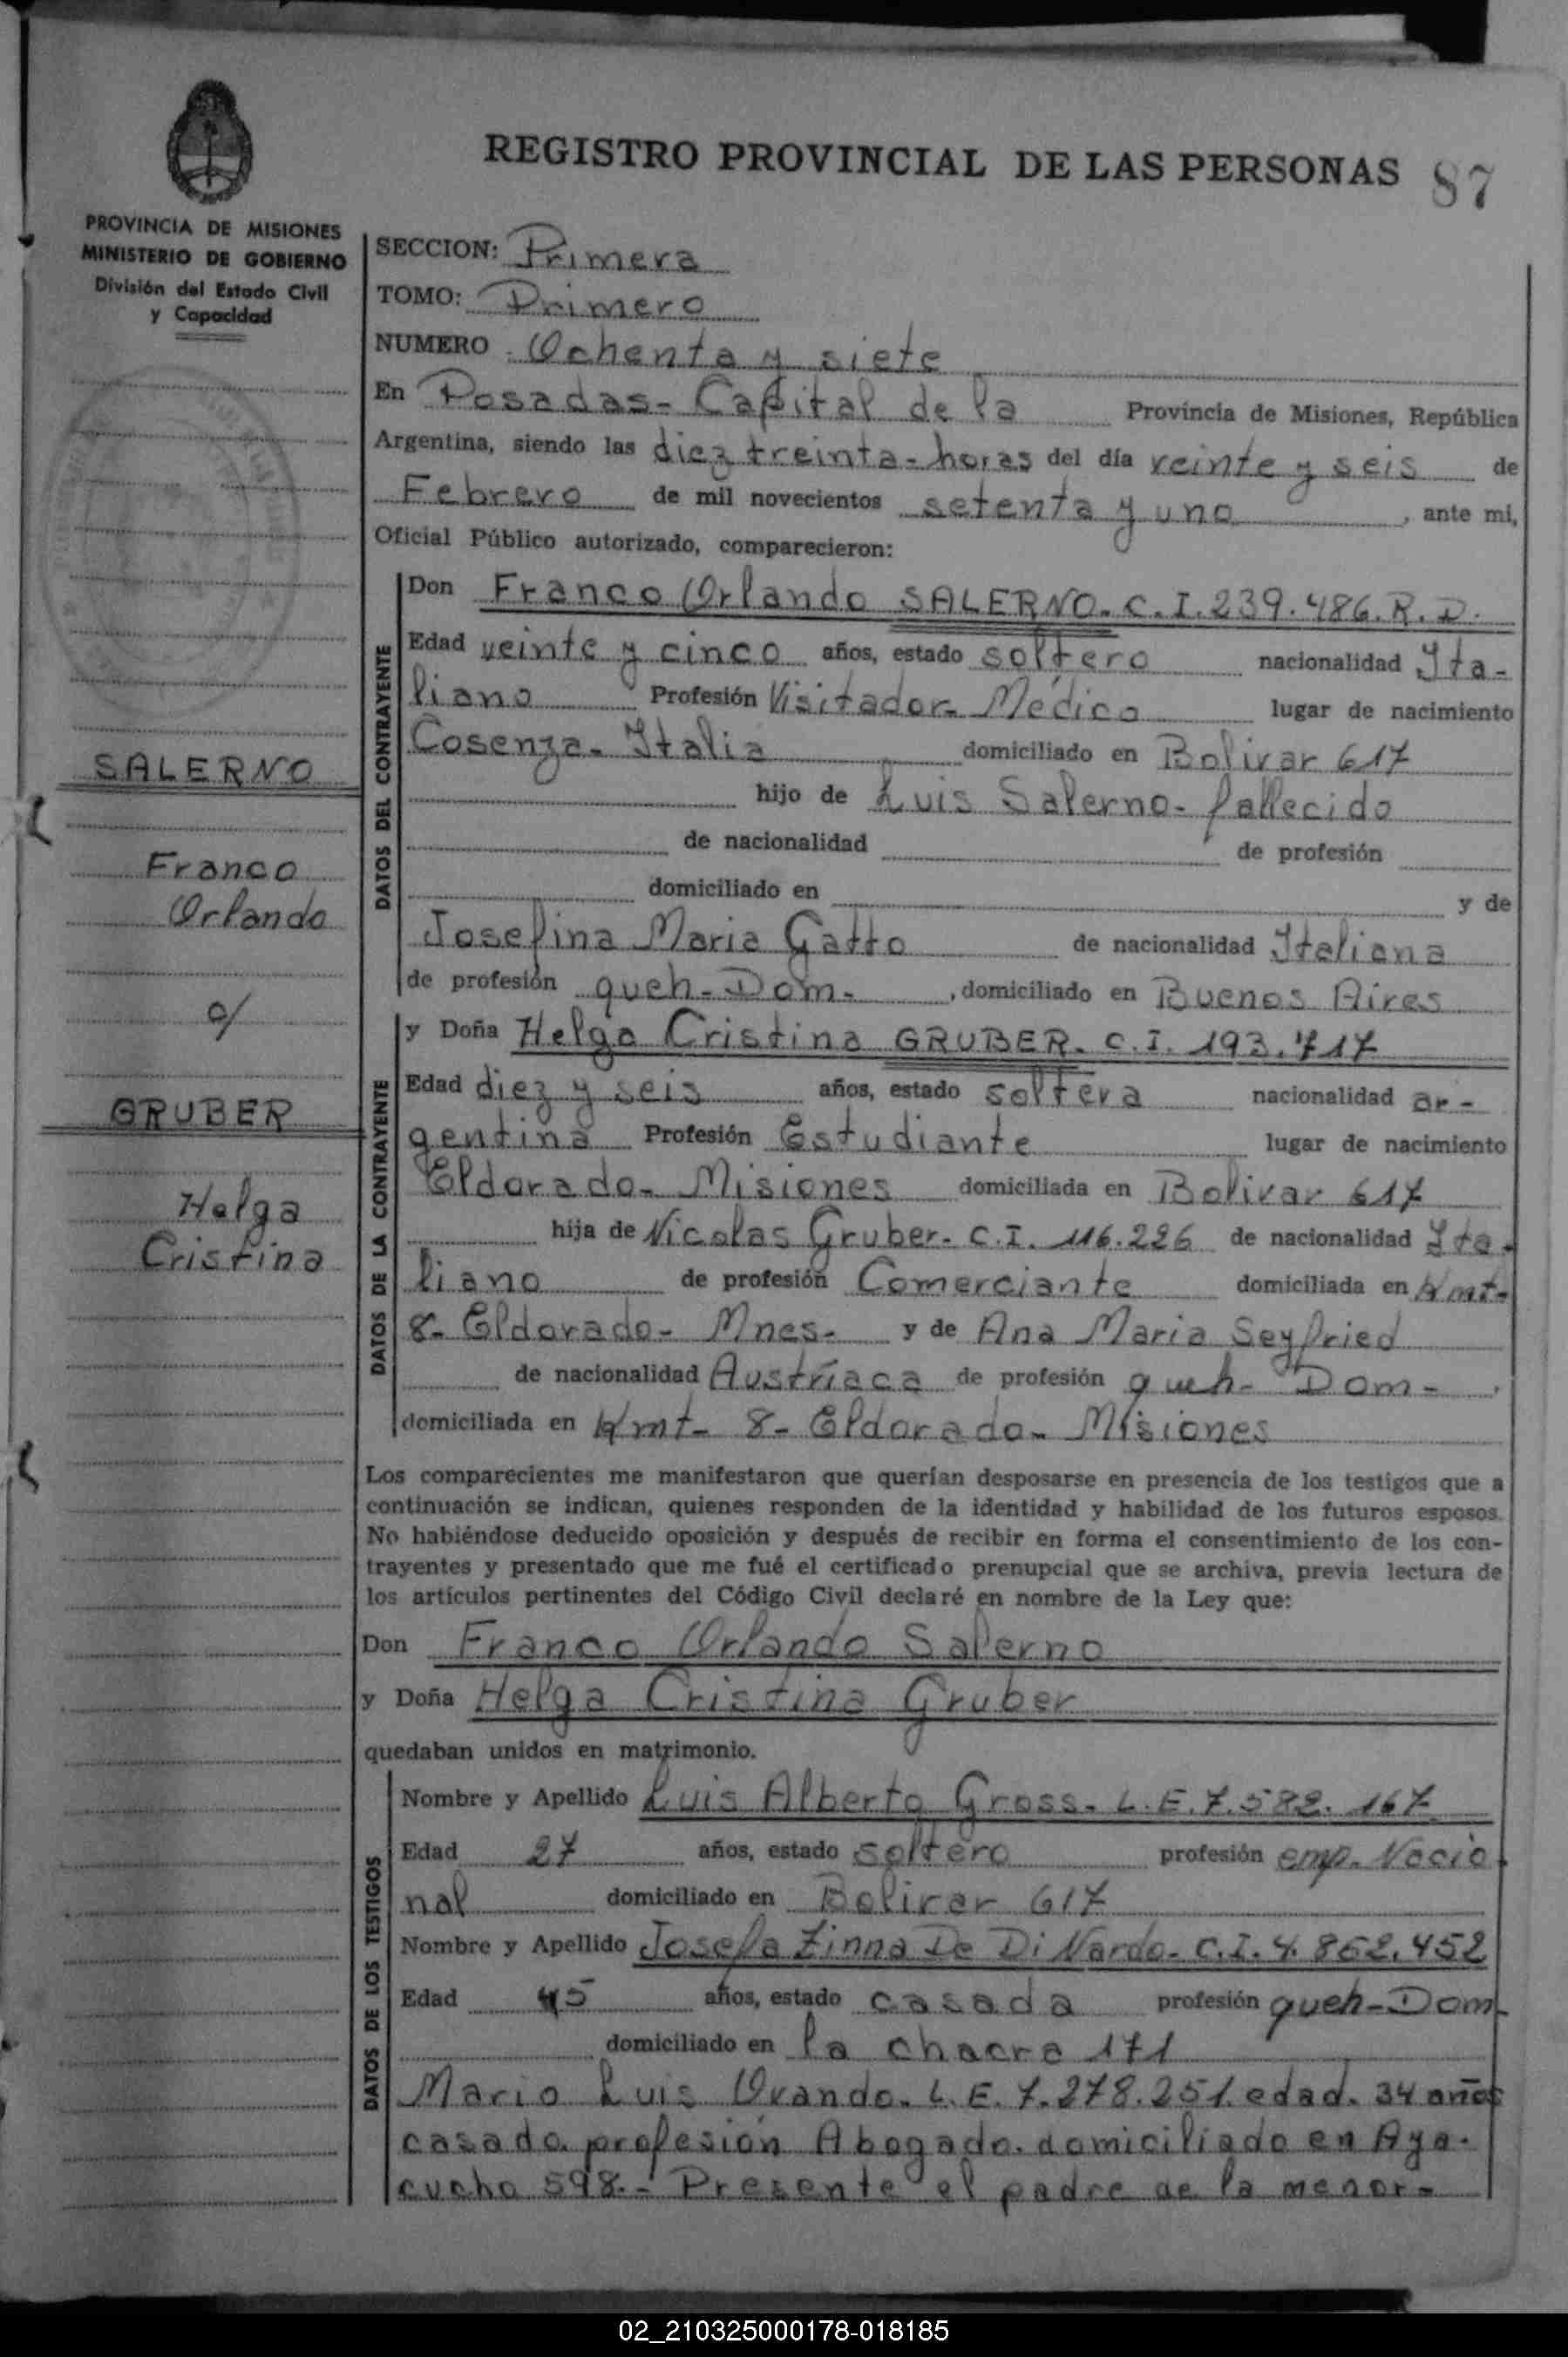 REGISTRO PROVINCIAL DE LAS PERSONAS 87
PROVINCIA DE MISIONES
MINISTERIO DE GOBIERNO
División del Estado Civil
y Capacidad
SALERNO
Franco
Orlando
c/
GRUBER
Helga
Cristina
SECCION: Primera
TOMO: Primero
NUMERO Ochenta y siete
En Posadas- Capital de la Provincia de Misiones, República
Argentina, siendo las diez treinta- horas del día veinte y seis de
Febrero de mil novecientos setenta y uno, ante mi,
Oficial Público autorizado, comparecieron:
DATOS DEL CONTRAYENTE
Don Franco Orlando SALERNO- C.I. 239.486. R.D.
Edad veinte y cinco años, estado soltero nacionalidad Ita-
liano Profesión Visitador- Médico lugar de nacimiento
Cosenza- Italia domiciliado en Bolivar 617
hijo de Luis Salerno- fallecido
de nacionalidad de profesión
domiciliado en y de
Josefina Maria Gatto de nacionalidad Italiana
de profesión queh- Dom-, domiciliado en Buenos Aires
DATOS DE LA CONTRAYENTE
y Doña Helga Cristina GRUBER- C.I. 193.717
Edad diez y seis años, estado soltera nacionalidad ar-
gentina Profesión Estudiante lugar de nacimiento
Eldorado- Misiones domiciliada en Bolivar 617
hija de Nicolas Gruber- C.I. 116.226 de nacionalidad Ita-
liano de profesión Comerciante domiciliada en Kmt-
8- Eldorado- Mnes- y de Ana Maria Seyfried
de nacionalidad Austríaca de profesión queh- Dom-,
domiciliada en Kmt- 8- Eldorado- Misiones
Los comparecientes me manifestaron que querían desposarse en presencia de los testigos que a
continuación se indican, quienes responden de la identidad y habilidad de los futuros esposos.
No habiéndose deducido oposición y después de recibir en forma el consentimiento de los con-
trayentes y presentado que me fué el certificado prenupcial que se archiva, previa lectura de
los artículos pertinentes del Código Civil declaré en nombre de la Ley que:
Don Franco Orlando Salerno
y Doña Helga Cristina Gruber
quedaban unidos en matrimonio.
DATOS DE LOS TESTIGOS
Nombre y Apellido Luis Alberto Gross- L.E. 7.582.167
Edad 27 años, estado soltero profesión emp- Nacio
nal domiciliado en Bolivar 617
Nombre y Apellido Josefa Zinna De Di Nardo- C.I. 4.862.452
Edad 45 años, estado casada profesión queh- Dom-
domiciliado en la chacra 171
Mario Luis Ovando- L.E. 7.278.251. edad. 34 años
casado. profesión Abogado. domiciliado en Aya-
cucho 598.- Presente el padre de la menor-
02_210325000178-018185